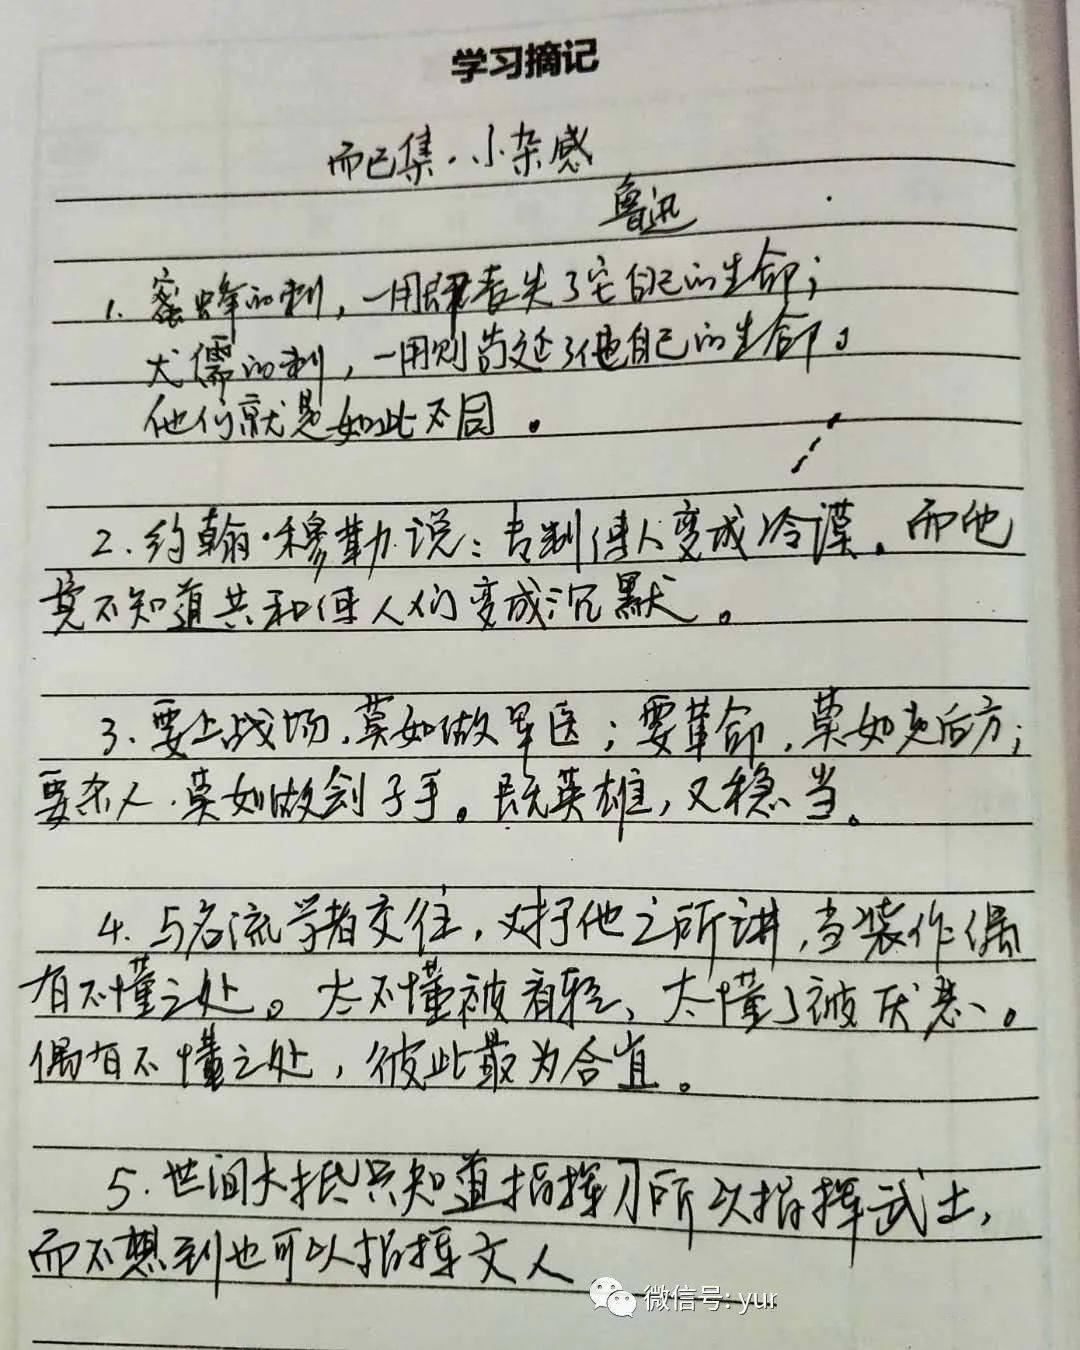 学习摘记
而已集·小杂感
鲁迅
1. 蜜蜂的刺，一用即丧失了它自己的生命；
犬儒的刺，一用则苟延了他自己的生命。
他们就是如此不同。
2. 约翰·穆勒说：专制使人变成冷漠。而他
竟不知道共和使人们变成沉默。
3. 要上战场，莫如做军医；要革命，莫如走后方；
要杀人，莫如做刽子手。既英雄，又稳当。
4. 与名流学者交往，对于他之所讲，当装作偶
有不懂之处。太不懂被看轻，太懂了被厌恶。
偶有不懂之处，彼此最为合宜。
5. 世间大抵只知道指挥刀所以指挥武士，
而不想到也可以指挥文人
微信号: yur